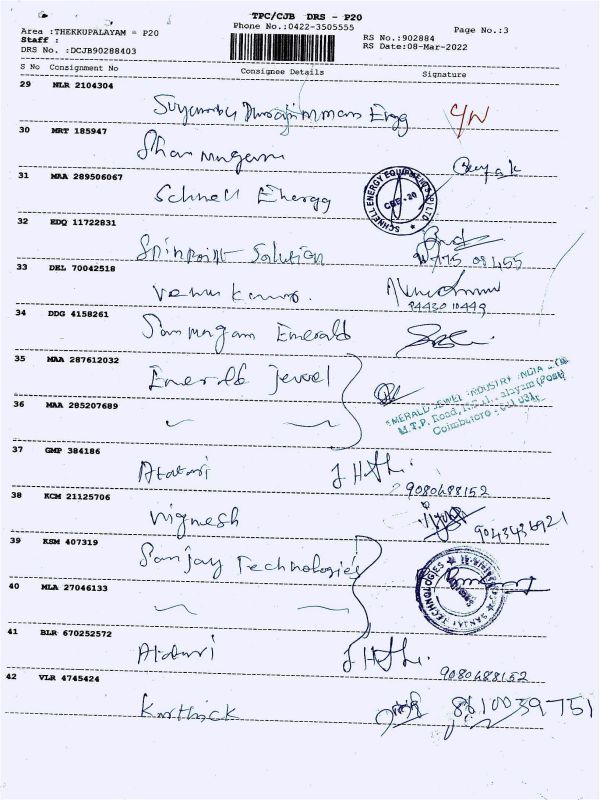 TPC/CJB DRS - P20
Area :THEKKUPALAYAM = P20
Phone No.:0422-3505555
Page No.:3
Staff :
RS No.:902884
DRS No. :DCJB90288403
RS Date:08-Mar-2022
S No Consignment No Consignee Details Signature
29 NLR 2104304
Engg
30 MRT 185947
Shanmugam
31 MAA 289506067
Schnell Energy
SCHNELL ENERGY EQUIPMENTS (P) LTD
CBE-20
32 EDQ 11722831
Spinpoint Solution
33 DEL 70042518
Venu Kumar.
94430 10449
34 DDG 4158261
Sanmugam Emerald
35 MAA 287612032
Emerald Jewel
EMERALD JEWEL INDUSTRY INDIA
M.T.P. Road,
Coimbatore
36 MAA 285207689
37 GMP 384186
9080488152
38 KCM 21125706
Vignesh
39 KSM 407319
Sanjay Technologies
SANJAI TECHNOLOGIES
40 MLA 27046133
41 BLR 670252572
9080488152
42 VLR 4745424
Karthick
8610039751